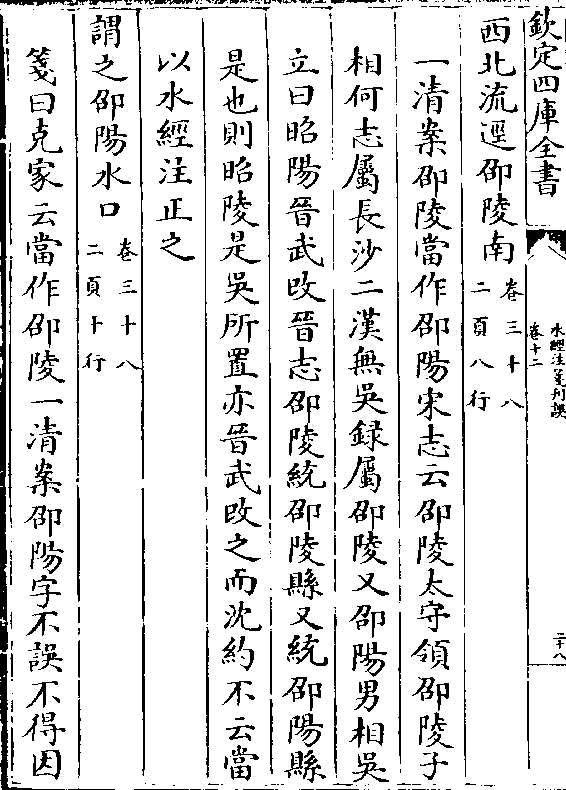 欽定四庫全書
水經注箋刋誤
卷十二
二十八
西北流逕邵陵南
卷三十八
二頁八行
一清案邵陵當作邵陽宋志云邵陵太守領邵陵子
相何志屬長沙二漢無吳録屬邵陵又邵陽男相吳
立曰昭陽晉武改晉志邵陵統邵陵縣又統邵陽縣
是也則昭陵是吳所置亦晉武改之而沈約不云當
以水經注正之
謂之邵陽水口
卷三十八
二頁十行
箋曰克家云當作邵陵一清案邵陽字不誤不得因